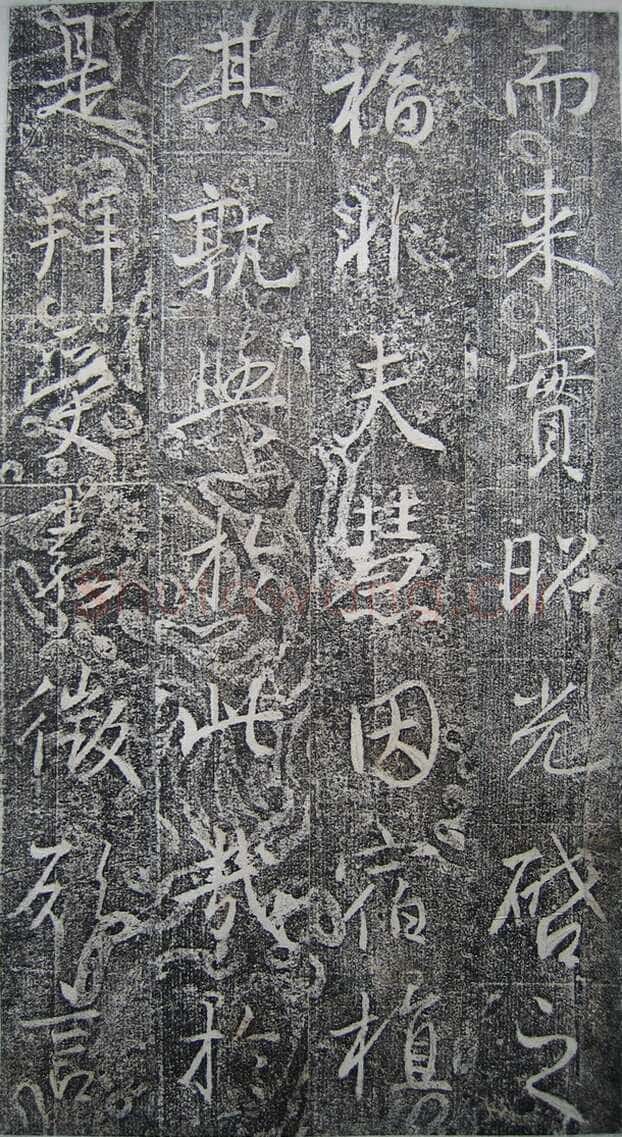 而来實昭光啓之
福非夫慧因宿植
其孰與於此哉於
是拜受徵言
shufawang.cn